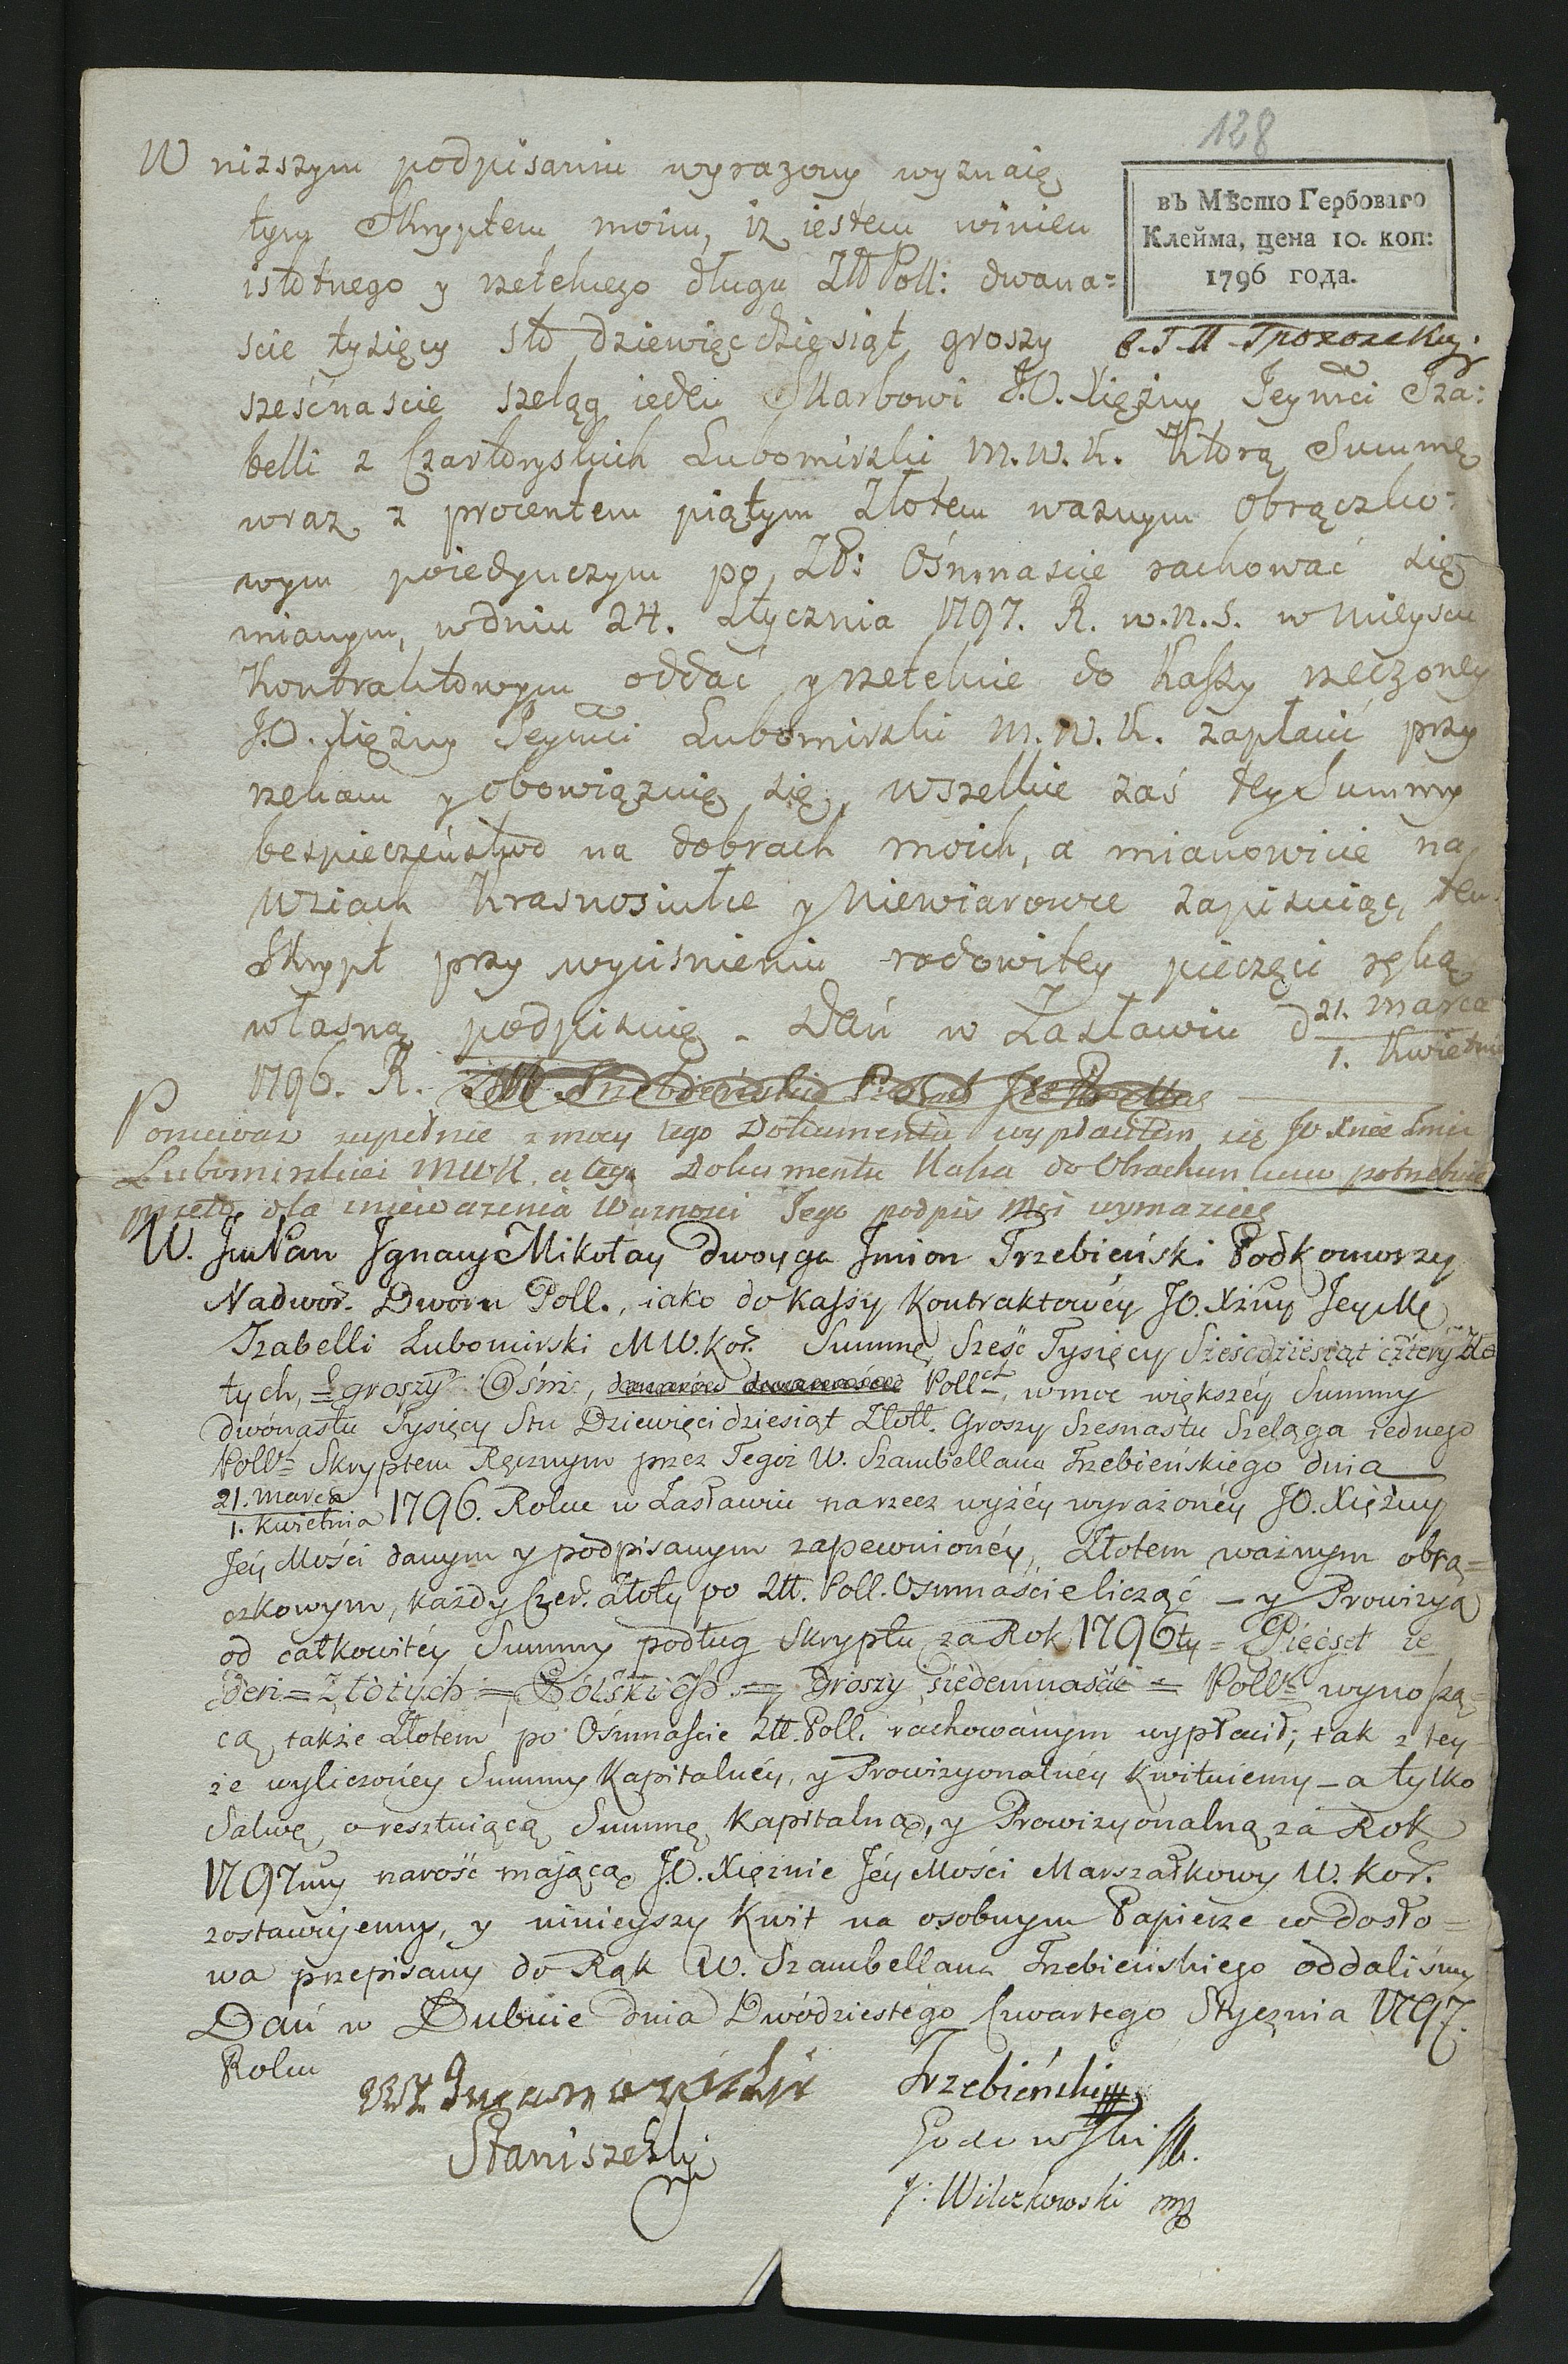 128
въ Мѣсто Гербоваго
Клейма, цена 10. коп:
1796 года.
W nizszym podpisaniu wyrazony wyznaię
tym Skryptem moim, iz iestem winien
istotnego y rzetelnego długu Złł Poll: dwana=
scie tysięcy sto dziewięcdziesiąt groszy
sześćnascie szeląg ieden Skarbowi J.O. Xiężny Jeymci Iza:
belli z Czartoryskich Lubomirski M.W.K. Ktorą Summę
wraz z procentem piątym Złotem waznym obrączko:
wym poiedynczym po Zł: Ośmnascie rachować się
mianym, w dniu 24. Stycznia 1797. R. w.n.s. w Mieyscu
Kontraktowym oddać y rzetelnie do Kassy rzeczoney
J.O. Xiężny Jeymci Lubomirski M.W.K. zapłacić przy
rzekam y obowiązuię się, wszelkie zaś tey Summy
bespieczeństwo na dobrach moich, a mianowicie na
Wsiach Krasnosiułce y Niewiarowce zapisuiąc, ten
Skrypt przy wycisnieniu rodowitey pieczęci ręką
własną podpisuię. Dań w Zasławiu d 21. Marca
1. Kwietnia
1796. R.
Poniewaz zupełnie z mocy tego Dokumentu wypłaciłem się JO Xnie Jmci
Lubomirskiei MWK. a tego Dokumentu Kassa do Obrachunkow potrzebuie
przeto dla znieważenia Wazności Jego podpis Moi wymazuię
W. Jm Pan Ignacy Mikołay dwoyga Jmion Trzebieński Podkomorzy
Nadwor. Dworu Poll., iako do Kassy Kontraktowéy JO. Xżny Jey Mć
Izabelli Lubomirski M W. Kor. Summę Sześć Tysięcy Sześćdziesiąt cztery Zło
tych, groszy Ośm, Poll, w moc większéy Summy
dwónastu Tysięcy Stu Dziewięcidziesiąt Złott. Groszy Szesnastu Szeląga iednego
Poll Skryptem Ręcznym przez Tegoż W. Szambellana Trzebieńskiego dnia
21. Marca
1. Kwietnia 1796. Roku w Zasławiu na rzecz wyżéy wyrażonéy JO. Xiężny
Jéy Mości danym y podpisanym zapewnionéy, Złotem ważnym obrą=
czkowym, każdy Czer. złoty po Złł. Poll. Osmnaście licząc – y Prowizyą
od całkowitéy Summy podług Skryptu za Rok 1796ty = Pięćset ie
den = Złotych = Polskich = groszy siedemnaście = Poll wynoszą=
cą także Złotem po Ośmnaście Złł. Poll. rachowanym wypłacił; tak z tey
że wyliczonéy Summy Kapitalnéy, y Prowizyonalnéy Kwituiemy – a tylko
Salwę o resztuiącą Summę Kapitalną, y Prowizyonalną za Rok
1797my narość mającą J.O. Xiężnie Jéy Mości Marszałkowy W. Kor.
zostawujemy, y ninieyszy Kwit na osobnym Papierze co do sło=
wa przepisany do Rąk W. Szambellana Trzebieńskiego oddaliśmy
Dań w Dubnie dnia Dwódziestego Czwartego Stycznia 1797.
Roku
Trzebieński
Staniszeski
J: Wilczkowski mp